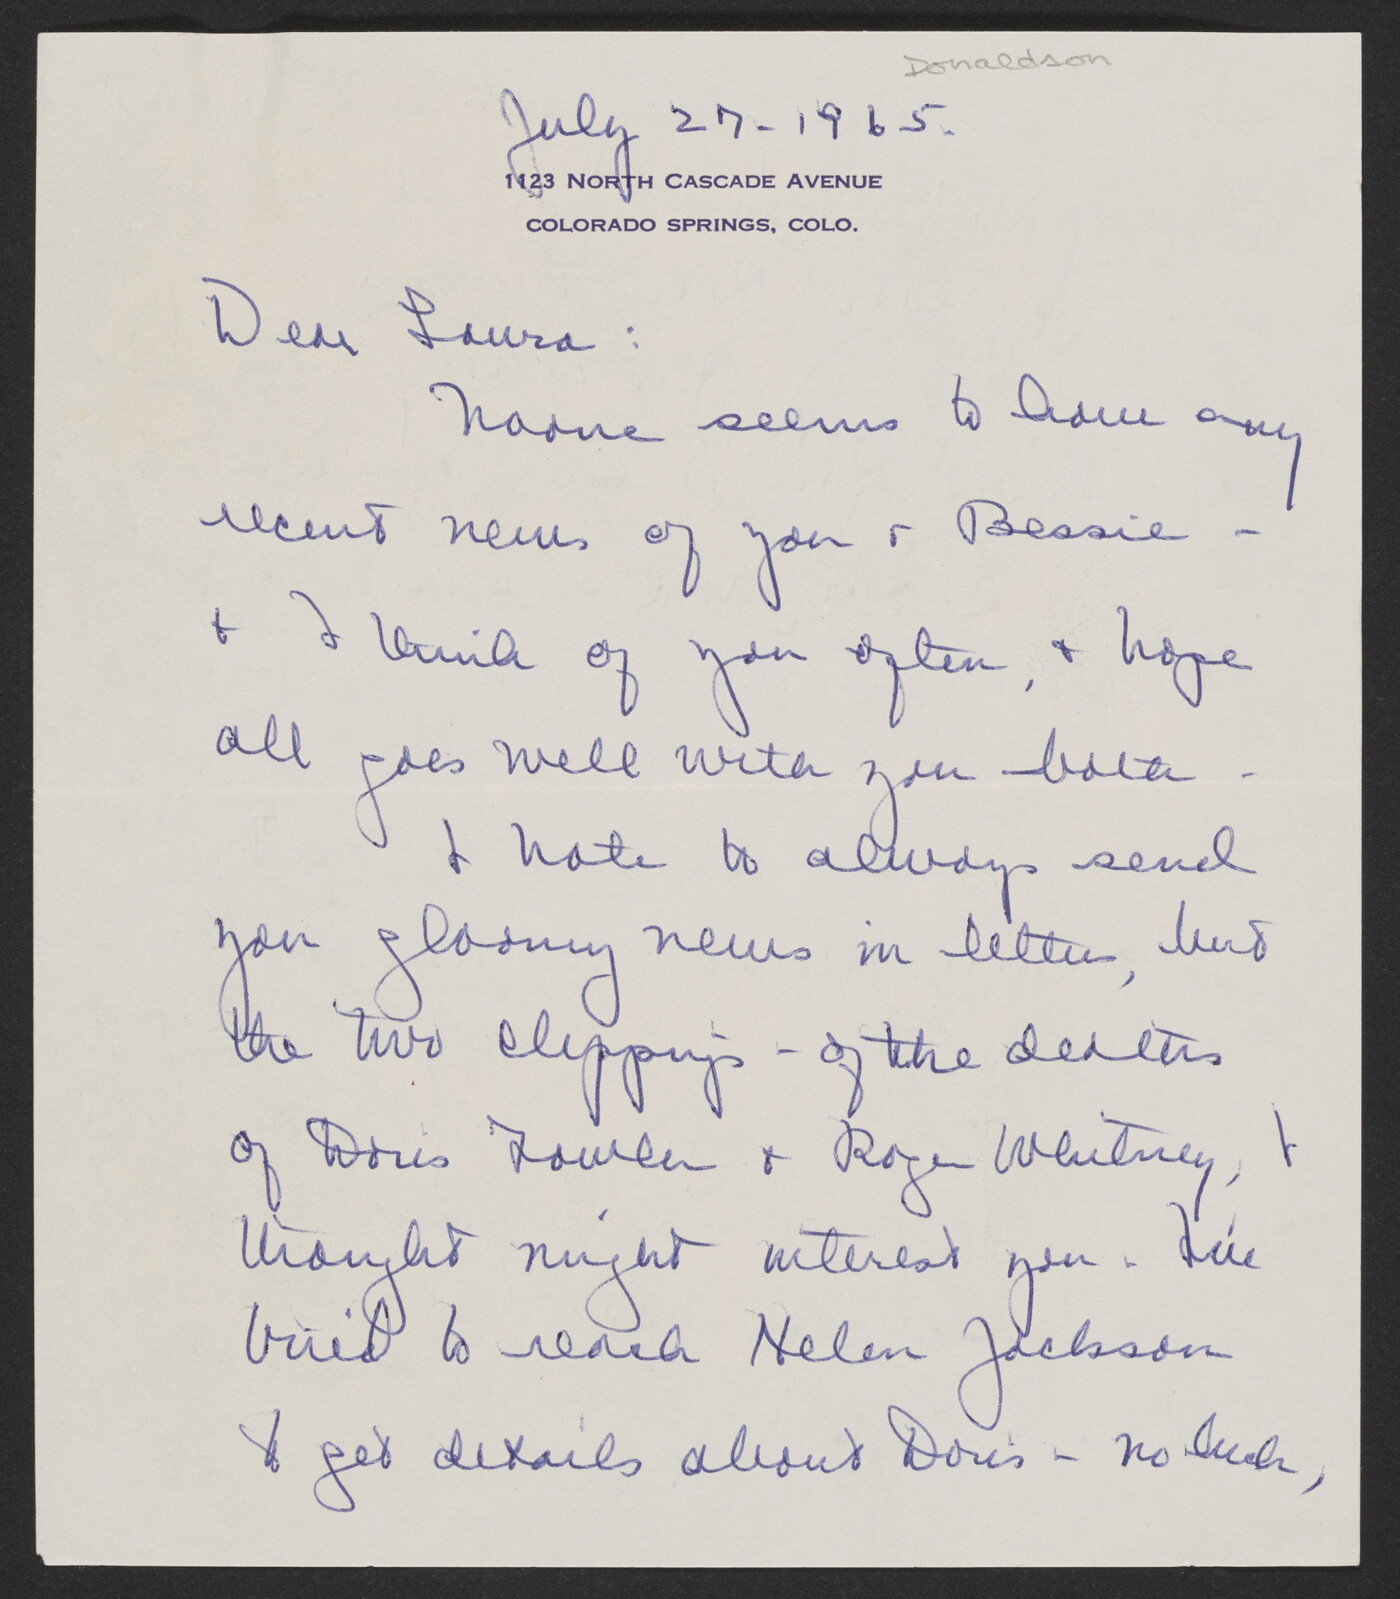 Donaldson
July 27-1965.
1123 NORTH CASCADE AVENUE
COLORADO SPRINGS, COLO.
Dear Laura:
Noone seems to have any
recent news of you + Bessie -
+ I think of you often, + hope
all goes well with you both -
I hate to always send
you gloomy news in letters, but
the two clippings - of the deaths
of Doris Fowler + Roger Whitney, I
thought might interest you. I've
tried to reach Helen Jackson
to get details about Doris - no luck,